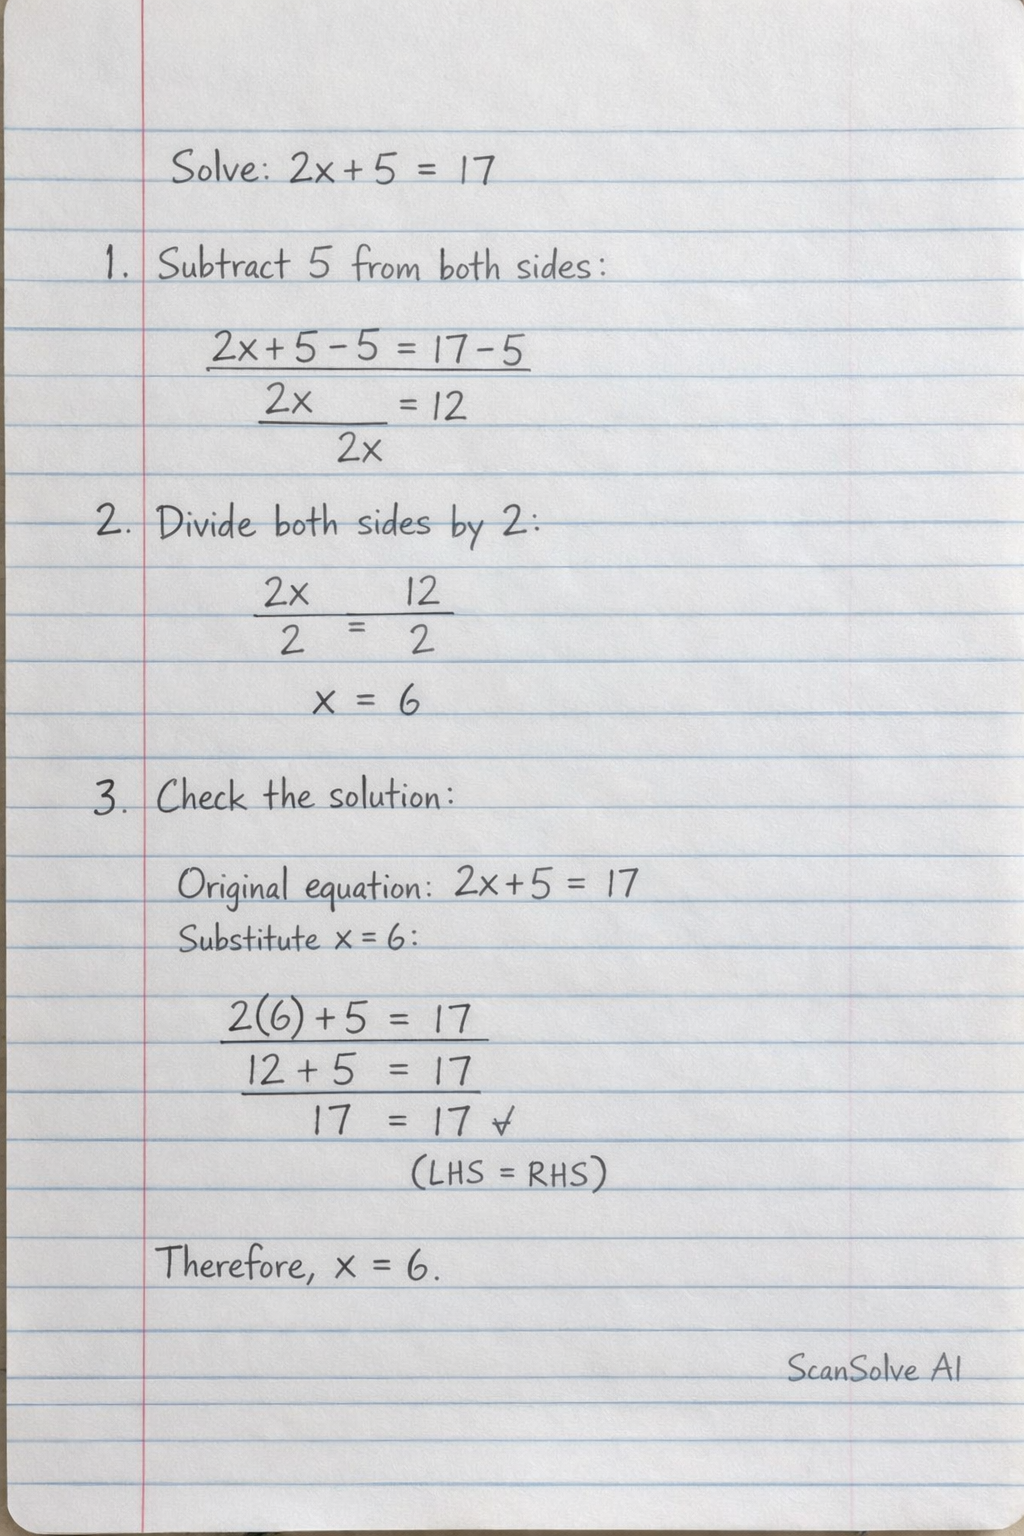 Solve: 2x + 5 = 17
1. Subtract 5 from both sides:
2x + 5 - 5 = 17 - 5
2x = 12
2x
2. Divide both sides by 2:
2x 12
2 = 2
x = 6
3. Check the solution:
Original equation: 2x + 5 = 17
Substitute x = 6:
2(6) + 5 = 17
12 + 5 = 17
17 = 17 ✓
(LHS = RHS)
Therefore, x = 6.
ScanSolve AI